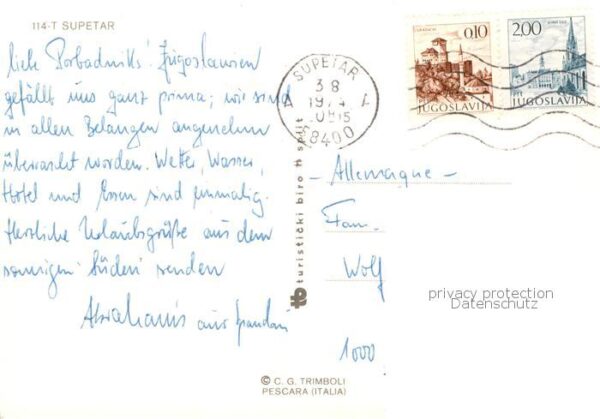 114-T SUPETAR
liebe Borbadniks! Jugoslawien
gefällt uns ganz prima; wir sind
in allen Belangen angenehm
überrascht worden. Wetter, Wasser,
Hotel und Essen sind einmalig.
Herzliche Urlaubsgrüße aus dem
sonnigen Süden senden
Abrahams aus
turistički biro split
SUPETAR
3 8
58400
0.10
JUGOSLAVIJA
2.00
JUGOSLAVIJA
- Allemagne -
Fam.
Wolf
1000
privacy protection
Datenschutz
© C. G. TRIMBOLI
PESCARA (ITALIA)